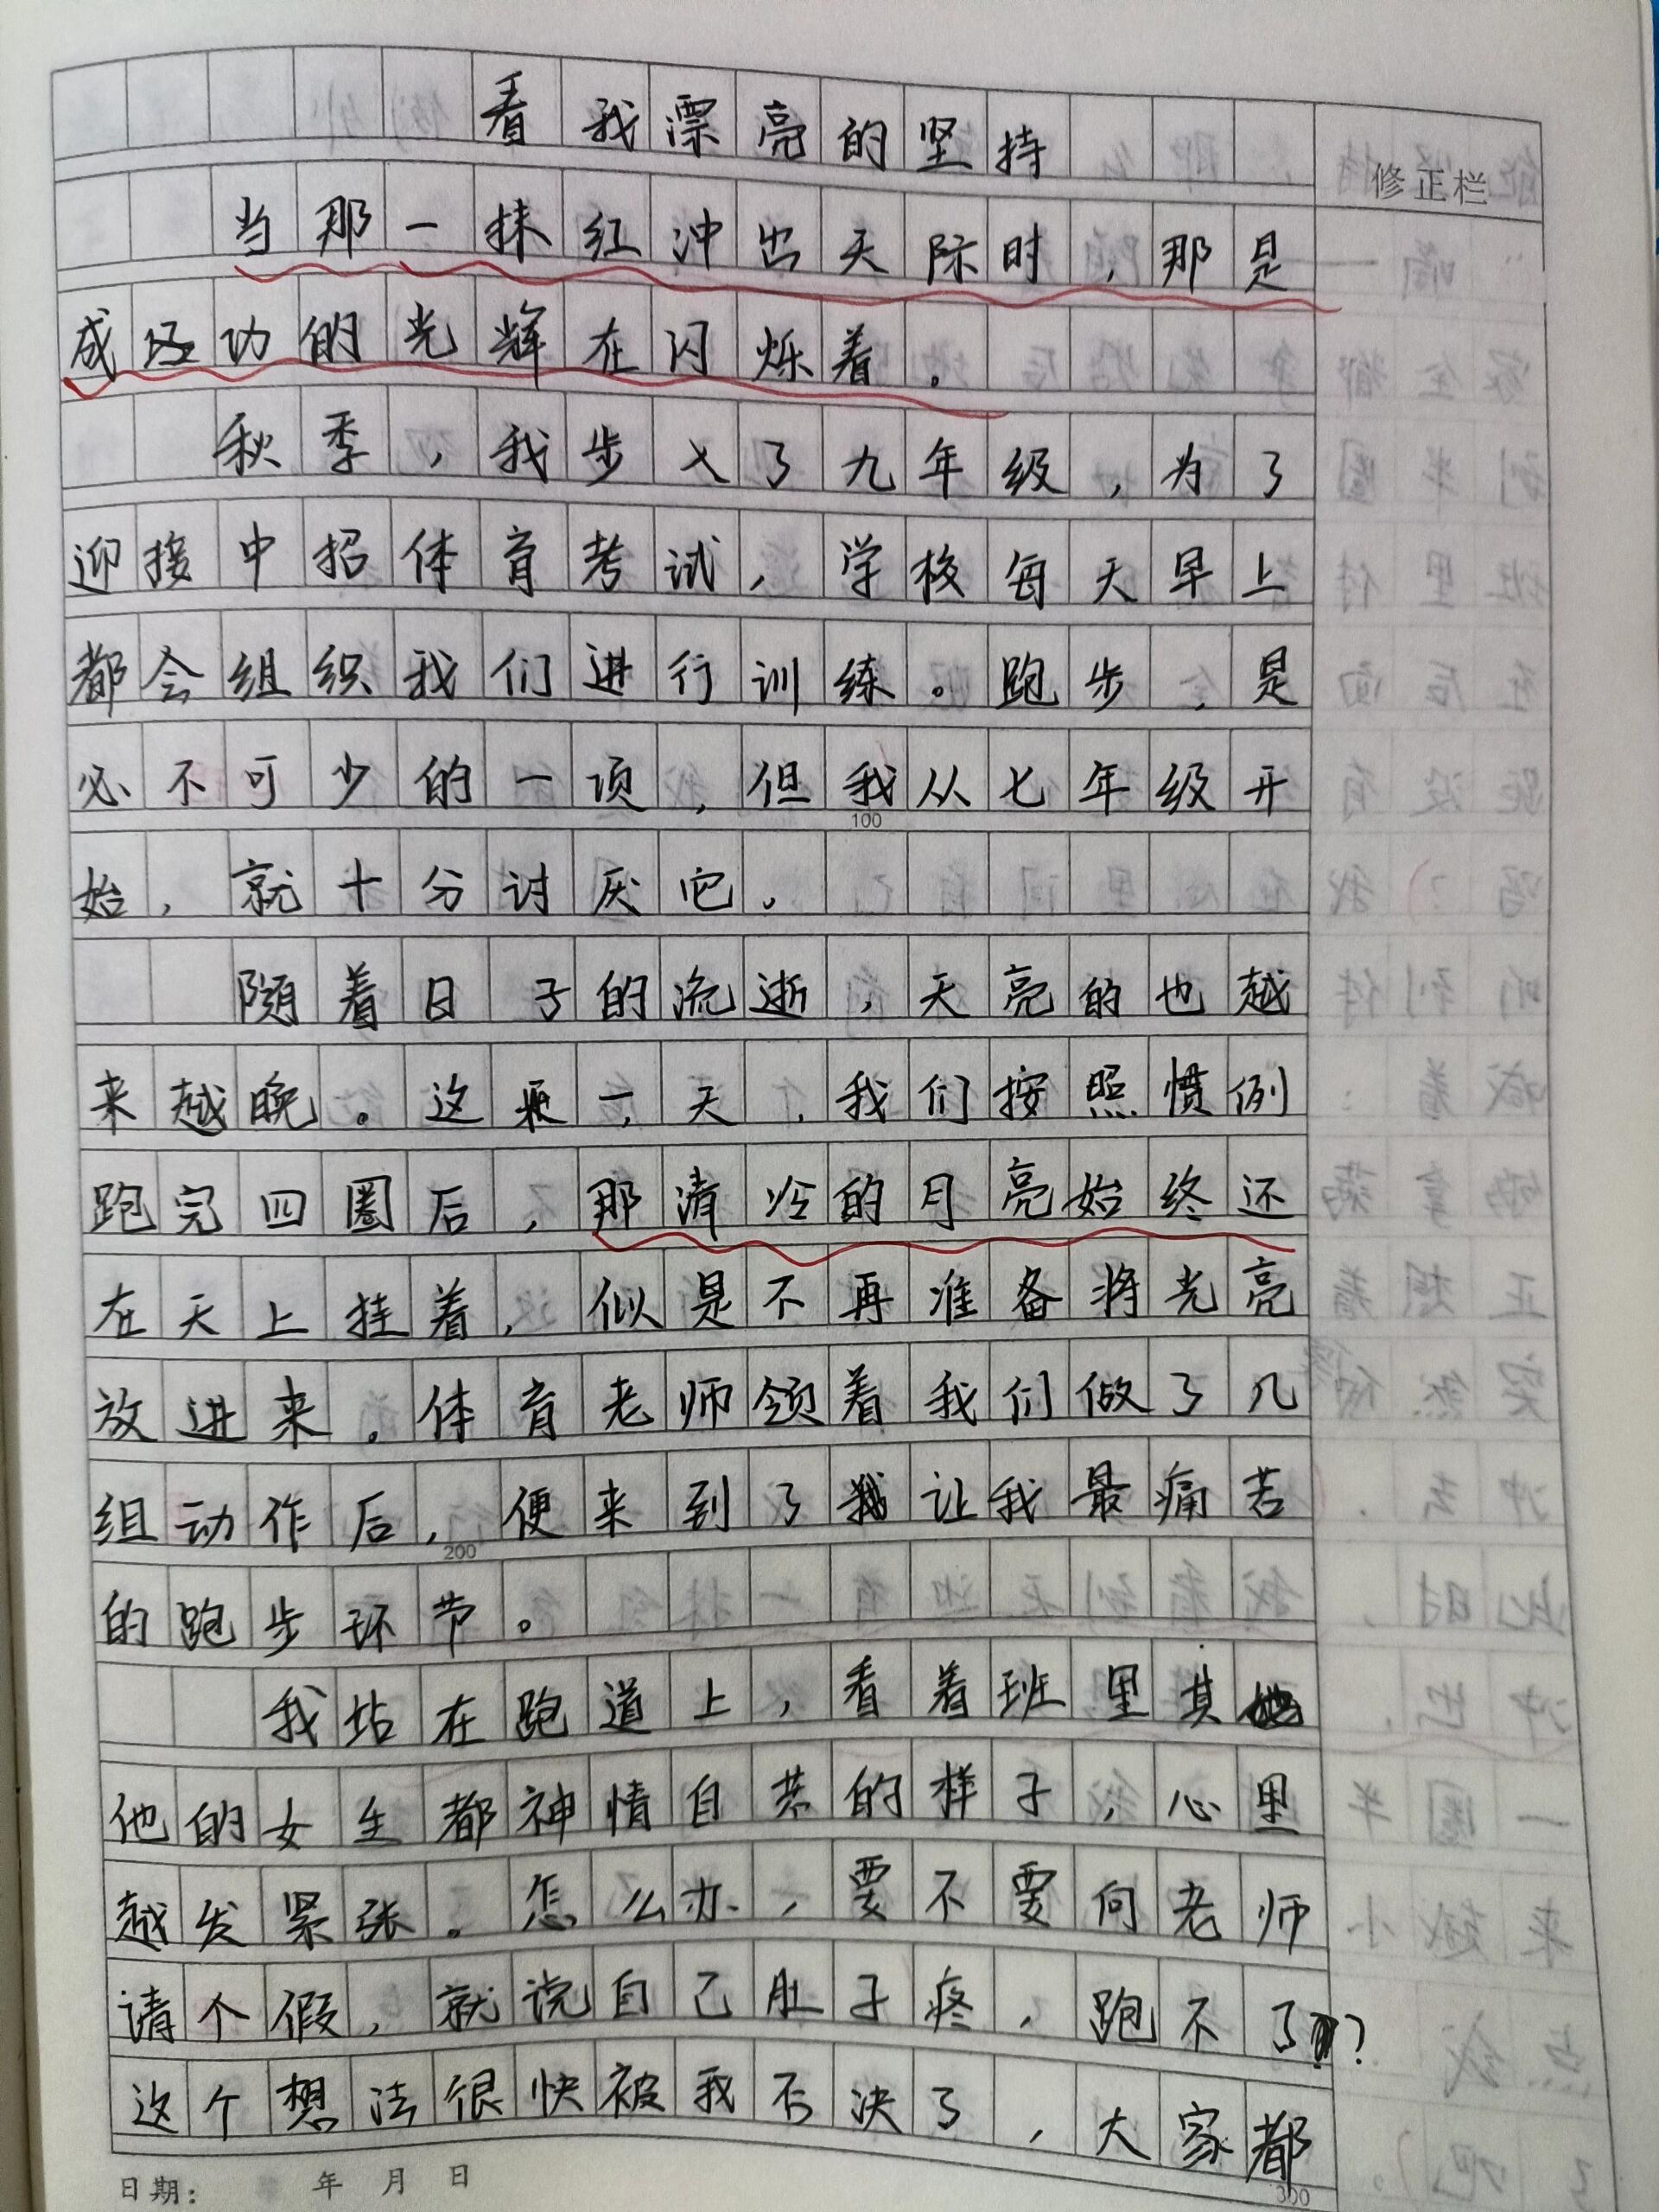 看我漂亮的坚持
修正栏
当那一抹红冲出天际时，那是
成功的光辉在闪烁着。
秋季，我步入了九年级，为了
迎接中招体育考试，学校每天早上
都会组织我们进行训练。跑步，是
必不可少的一项，但我从七年级开
100
始，就十分讨厌它。
随着日子的流逝，天亮的也越
来越晚。这一天，我们按照惯例
跑完四圈后，那清冷的月亮始终还
在天上挂着，似是不再准备将光亮
放进来。体育老师领着我们做了几
组动作后，便来到了让我最痛苦
200
的跑步环节。
我站在跑道上，看着班里其
他的女生都神情自若的样子，心里
越发紧张。怎么办，要不要向老师
请个假，就说自己肚子疼，跑不了？
这个想法很快被我否决了，大家都
300
日期： 年 月 日